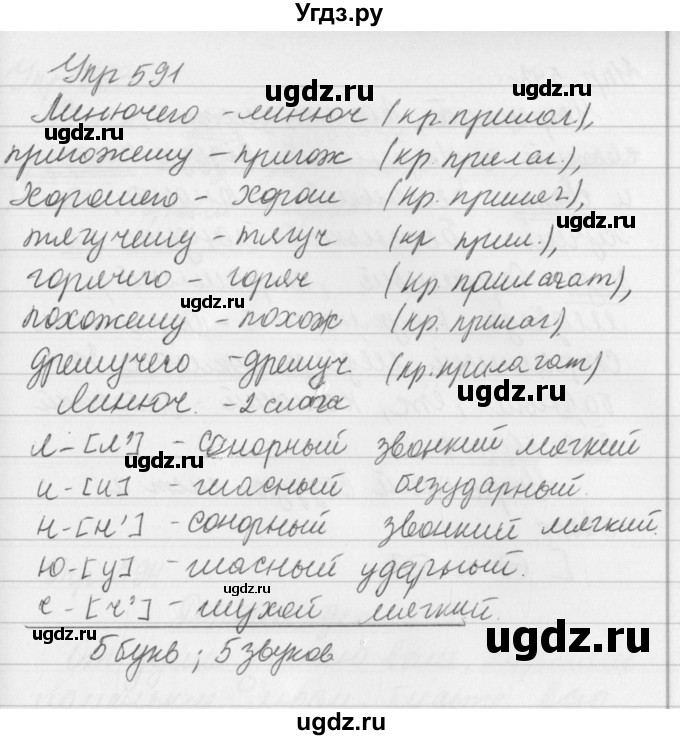 Угдз.ру
Упр 591
Линючего - линюч (кр. прилаг.),
пригожему - пригож (кр. прилаг.),
Хорошего - Хорош (кр. прилаг),
тягучему - тягуч (кр прил.),
горячего - горяч (кр прилагат),
похожему - похож (кр. прилаг)
дремучего - дремуч (кр. прилагат)
Линюч. - 2 слога
л - [л'] - сонорный звонкий мягкий
и - [и] - гласный безударный.
н - [н'] - сонорный звонкий мягкий.
ю - [у] - гласный ударный.
ч - [ч'] - глухой мягкий.
5 букв ; 5 звуков
ugdz.ru
ugdz.ru
ugdz.ru
ugdz.ru
ugdz.ru
ugdz.ru
ugdz.ru
ugdz.ru
ugdz.ru
ugdz.ru
ugdz.ru
ugdz.ru
ugdz.ru
ugdz.ru